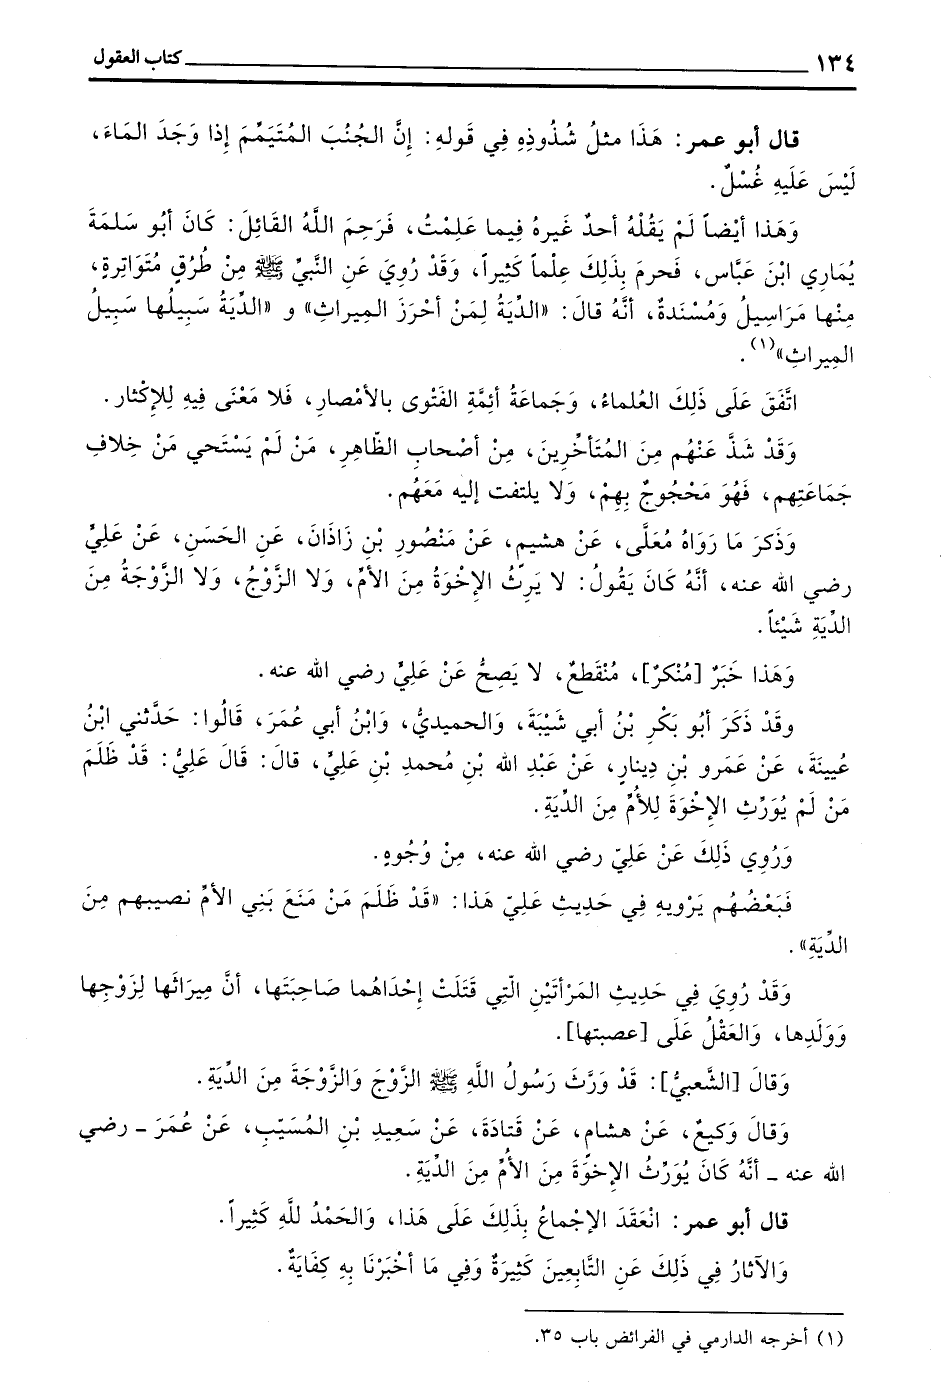 ١٣٤ كتاب العقول
قال أبو عمر: هَذَا مثلُ شُذُوذِهِ فِي قَولِهِ: إنَّ الجُنُبَ المُتَيَمِّمَ إذا وَجَدَ المَاءَ،
لَيْسَ عَلَيهِ غُسْلٌ.
وَهَذا أيْضاً لَمْ يَقُلْهُ أحدٌ غَيرهُ فِيما عَلِمْتُ، فَرَحِمَ اللَّهُ القَائِلَ: كَانَ أبُو سَلمةَ
يُمَاري ابْنَ عَبَّاس، فَحرمَ بِذَلِكَ عِلْماً كَثيراً، وَقَدْ رُويَ عَنِ النَّبيِّ ﷺ مِنْ طُرُقٍ مُتَوَاتِرةٍ،
مِنْها مَرَاسِيلُ وَمُسْنَدةٌ، أنَّهُ قالَ: «الدِّيَةُ لِمَنْ أحْرَزَ المِيراثِ» و «الدِّيَةُ سَبِيلُها سَبِيلُ
المِيراثِ»(١).
اتَّفَقَ عَلَى ذَلِكَ العُلماءُ، وَجَماعَةُ أئِمَّةِ الفَتْوى بالأمْصارِ، فَلا مَعْنَى فِيهِ لِلإكْثار.
وَقَدْ شَذَّ عَنْهُم مِنَ المُتَأخِّرينَ، مِنْ أصْحابِ الظّاهِرِ، مَنْ لَمْ يَسْتَحي مَنْ خِلافِ
جَمَاعَتِهم، فَهُوَ مَحْجُوجٌ بِهِمْ، وَلا يلتفت إليه مَعَهُم.
وَذَكَرَ مَا رَوَاهُ مُعَلَّى، عَنْ هشيمٍ، عَنْ مَنْصُورِ بْنِ زَاذَانَ، عَنِ الحَسَنِ، عَنْ عَليٍّ
رضي الله عنه، أنَّهُ كَانَ يَقُولُ: لا يَرِثُ الإخْوَةُ مِنَ الأمِّ، وَلا الزَّوْجُ، وَلا الزَّوْجَةُ مِنَ
الدِّيَةِ شَيْئاً.
وَهَذا خَبَرٌ [مُنْكرٌ]، مُنْقَطعٌ، لا يَصِحُّ عَنْ عَليٍّ رضي الله عنه.
وقَدْ ذَكَرَ أبُو بَكْرِ بْنُ أبي شَيْبَةَ، وَالحميديُّ، وَابْنُ أبي عُمَرَ، قَالُوا: حَدَّثني ابْنُ
عُيينَةَ، عَنْ عَمَرو بْنِ دِينارٍ، عَنْ عَبْدِ الله بْنِ مُحمدِ بْنِ عَليٍّ، قالَ: قَالَ عَليٌّ: قَدْ ظَلَمَ
مَنْ لَمْ يُوَرِّثِ الإخْوَةَ لِلأُمِّ مِنَ الدِّيَةِ.
وَرُوِي ذَلِكَ عَنْ عَليّ رضي الله عنه، مِنْ وُجُوهٍ.
فَبَعْضُهُم يَرْويهِ فِي حَدِيثِ عَليّ هَذا: «قَدْ ظَلَمَ مَنْ مَنَعَ بَنِي الأمِّ نصيبهم مِنَ
الدِّيَةِ».
وَقَدْ رُويَ فِي حَدِيثِ المَرْأتَيْنِ الّتِي قَتَلَتْ إحْدَاهُما صَاحِبَتَها، أنَّ مِيرَاثَها لِزَوْجِها
وَوَلَدِها، وَالعَقْلُ عَلَى [عصبتها].
وَقَالَ [الشَّعبيُّ]: قَدْ وَرَّثَ رَسُولُ اللَّهِ ﷺ الزَّوْجَ وَالزَّوْجَةَ مِنَ الدِّيَةِ.
وَقَالَ وَكيعٌ، عَنْ هشام، عَنْ قَتَادَةَ، عَنْ سَعِيدِ بْنِ المُسَيّبِ، عَنْ عُمَرَ ـ رضي
الله عنه ـ أنَّهُ كَانَ يُوَرِّثُ الإخوَّةَ مِنَ الأُمِّ مِنَ الدِّيَةِ.
قال أبو عمر: انْعَقَدَ الإجْماعُ بِذَلِكَ عَلَى هَذا، وَالحَمْدُ للَّهِ كَثِيراً.
وَالآثارُ فِي ذَلِكَ عَنِ التَّابِعينَ كَثيرَةٌ وَفِي مَا أخْبَرْنَا بِهِ كِفَايَةٌ.
(١) أخرجه الدارمي في الفرائض باب ٣٥.